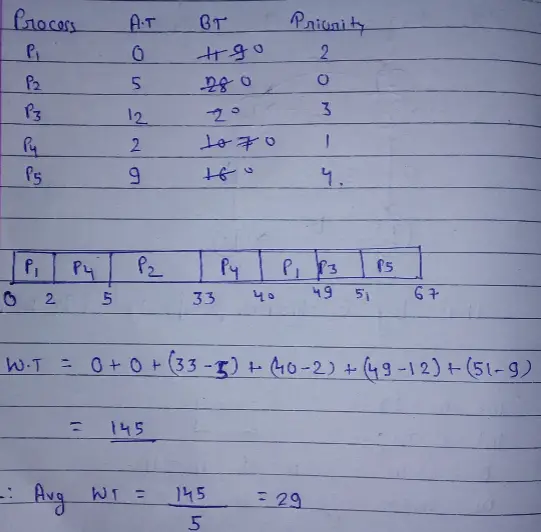 Process A.T BT Priority
P1 0 11 9 0 2
P2 5 28 0 0
P3 12 2 0 3
P4 2 10 7 0 1
P5 9 16 0 4.
P1 P4 P2 P4 P1 P3 P5
0 2 5 33 40 49 51 67
W.T = 0 + 0 + (33-5) + (40-2) + (49-12) + (51-9)
= 145
∴ Avg WT = 145 / 5 = 29